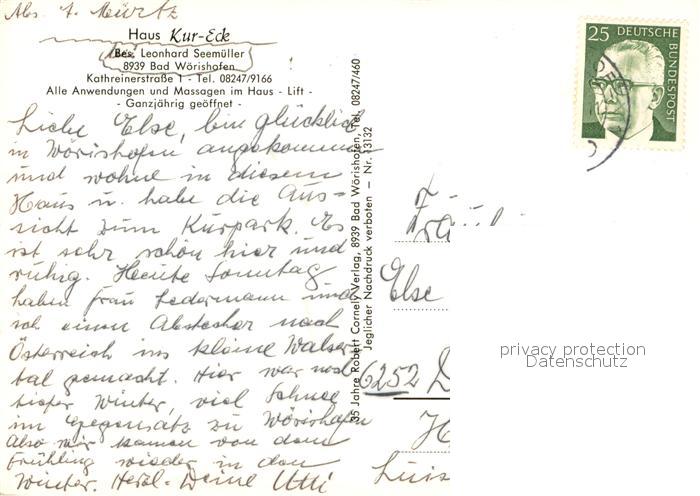 Abs. z. Zt. Mürtz
Haus Kur-Eck
Bes. Leonhard Seemüller
8939 Bad Wörishofen
Kathreinerstraße 1 - Tel. 08247/9166
Alle Anwendungen und Massagen im Haus - Lift -
- Ganzjährig geöffnet -
Liebe Else, bin glücklich
in Wörishofen angekommen
und wohne in diesem
Haus u. habe die Aus-
sicht zum Kurpark. Es
ist sehr schön hier und
ruhig. Heute Sonntag
haben Frau Ledermann und
ich einen Abstecher nach
Österreich ins kleine Walser-
tal gemacht. Hier war noch
tiefer Winter, viel Schnee
im Gegensatz zu Wörishofen
Also wir kamen von dem
Frühling wieder in den
Winter. Herzl. Deine Utti
35 Jahre Robert Cornely Verlag, 8939 Bad Wörishofen, Tel. 08247/460
Jeglicher Nachdruck verboten - Nr. 13132
25 DEUTSCHE
BUNDESPOST
Fräu
Else
6252 D
H
Luis
privacy protection
Datenschutz